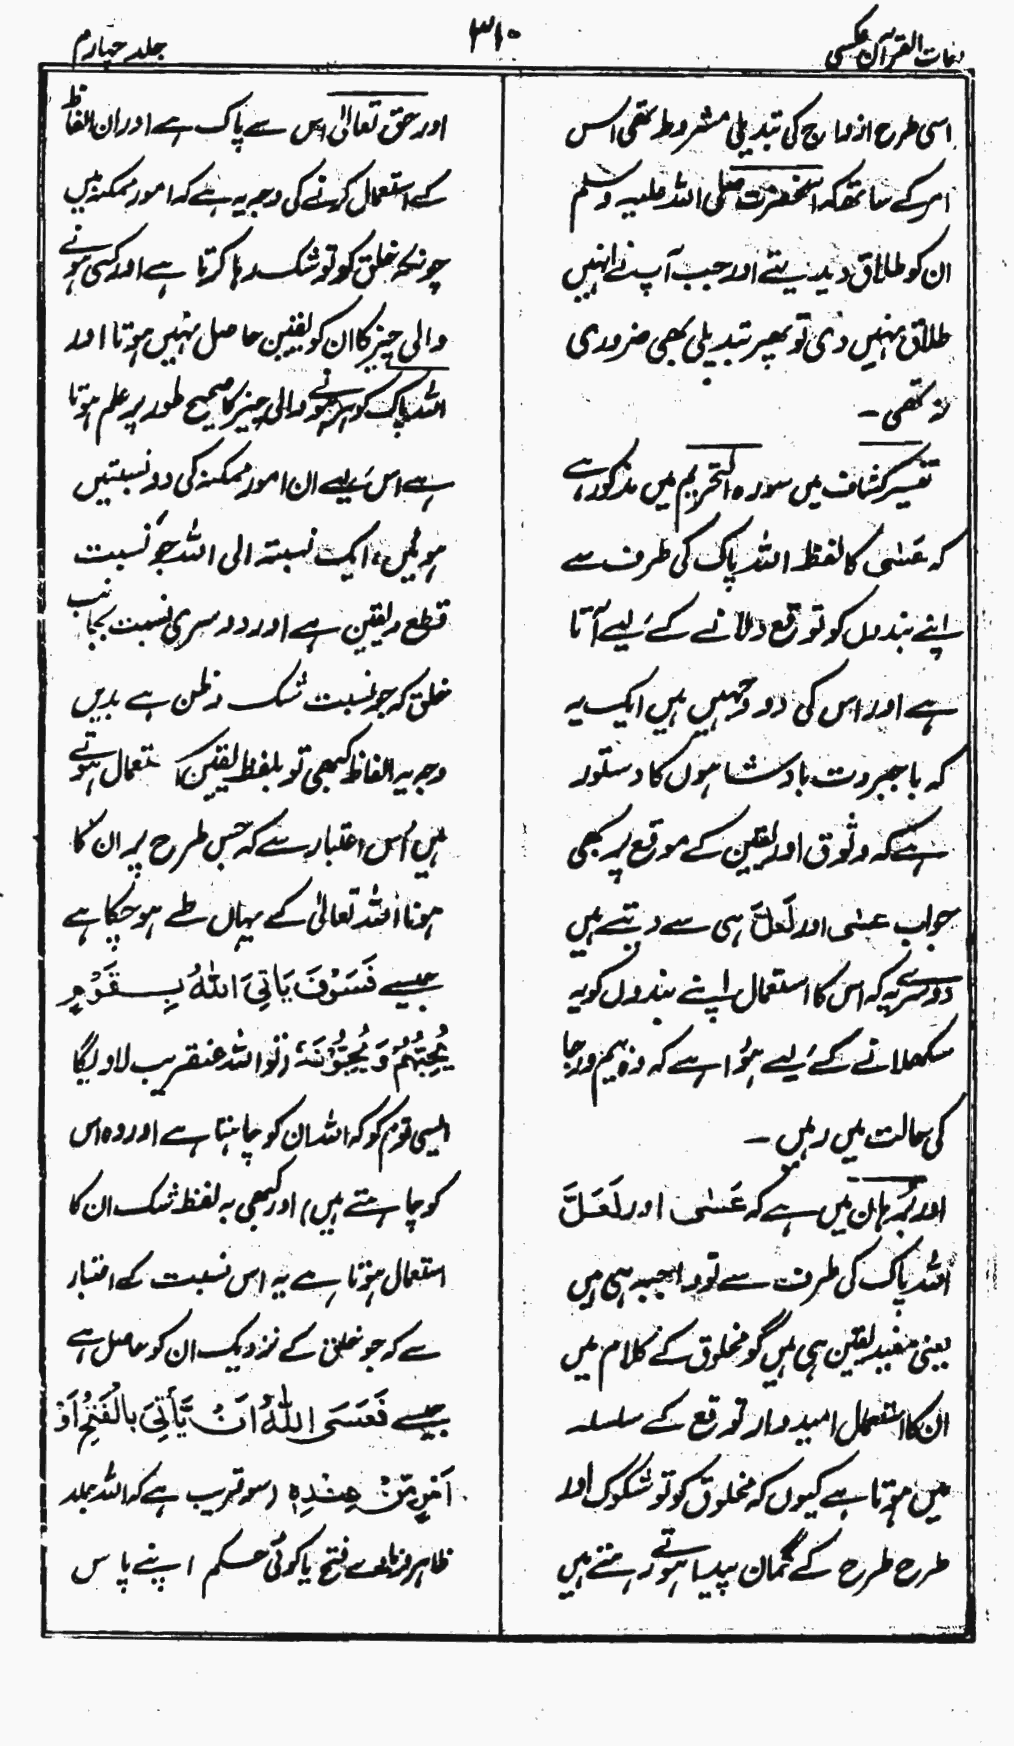 لغات القرآن عکسی
۳۱۰
جلد چہارم
اسی طرح ازواج کی تبدیلی مشروط تھی اس
امر کے ساتھ کہ آنحضرت صلی اللہ علیہ وسلم
ان کو طلاق دیدیتے اور جب آپ نے انہیں
طلاق نہیں دی تو پھر تبدیلی بھی ضروری
نہ تھی ۔
تفسیر کشاف میں سورہ التحریم میں مذکور ہے
کہ عَسٰی کا لفظ اللہ پاک کی طرف سے
اپنے بندوں کو توقع دلانے کے لیے آتا
ہے اور اس کی دو وجہیں ہیں ایک یہ
کہ باجبروت بادشاہوں کا دستور
ہے کہ وثوق اور یقین کے موقع پر بھی
جواب عسٰی اور لَعَلَّ ہی سے دیتے ہیں
دوسرے یہ کہ اس کا استعمال اپنے بندوں کو یہ
سکھلانے کے لیے ہوا ہے کہ وہ بیم ورجا
کی حالت میں رہیں ۔
اور برہان میں ہے کہ عَسٰی اور لَعَلَّ
اللہ پاک کی طرف سے تو واجب ہی ہیں
یعنی مفید یقین ہی ہیں گو مخلوق کے کلام میں
ان کا استعمال امید وار توقع کے سلسلہ
میں ہوتا ہے کیوں کہ مخلوق کو تو شکوک اور
طرح طرح کے گمان پیدا ہوتے رہتے ہیں
اور حق تعالیٰ اس سے پاک ہے اور ان الفاظ
کے استعمال کرنے کی وجہ یہ ہے کہ امور ممکنہ میں
چونکہ خلق کو تو شک رہا کرتا ہے اور کسی ہونے
والی چیز کا ان کو یقین حاصل نہیں ہوتا اور
اللہ پاک کو ہر ہونے والی چیز کا صحیح طور پر علم ہوتا
ہے اس لیے ان امور ممکنہ کی دو نسبتیں
ہوئیں، ایک نسبتہ الی اللہ جو نسبت
قطع و یقین ہے اور دوسری نسبت بجانب
خلق کہ جو نسبت شک و ظن ہے بدیں
وجہ یہ الفاظ کبھی تو بلفظ یقین استعمال ہوتے
ہیں اُس اعتبار سے کہ جس طرح پر ان کا
ہونا اللہ تعالیٰ کے یہاں طے ہو چکا ہے
جیسے فَسَوْفَ يَاْتِیَ اللّٰهُ بِقَوْمٍ
يُّحِبُّهُمْ وَ يُحِبُّوْنَهٗ (تو اللہ عنقریب لاویگا
ایسی قوم کو کہ اللہ ان کو چاہتا ہے اور وہ اس
کو چاہتے ہیں) اور کبھی بہ لفظ شک ان کا
استعمال ہوتا ہے یہ اس نسبت کے اعتبار
سے کہ جو خلق کے نزدیک ان کو حاصل ہے
جیسے فَعَسَى اللّٰهُ اَنْ يَّأْتِیَ بِالْفَتْحِ اَوْ
اَمْرٍ مِّنْ عِنْدِهٖ (سو قریب ہے کہ اللہ جلد
ظاہر فرماوے فتح یا کوئی حکم اپنے پاس